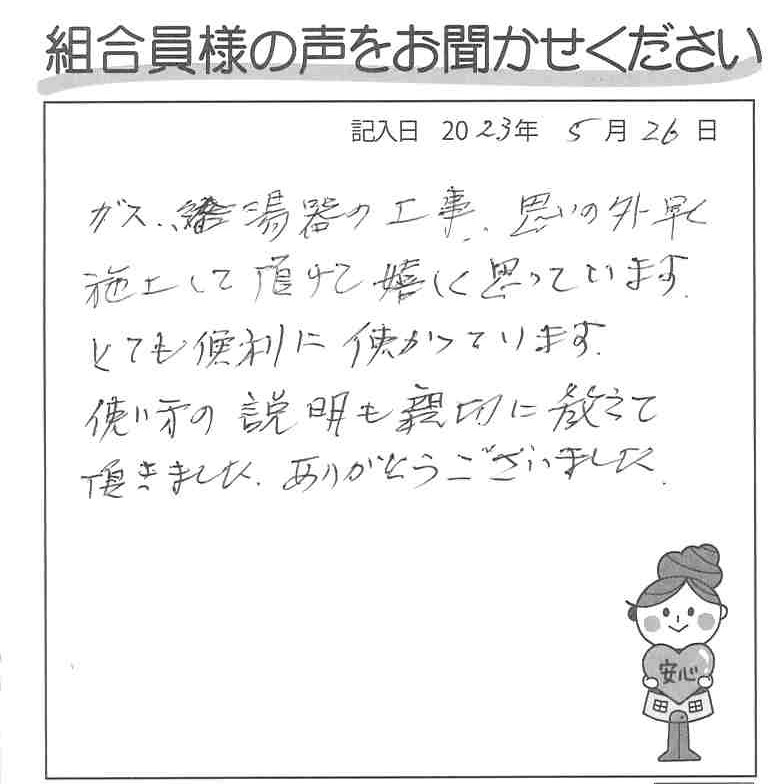 組合員様の声をお聞かせください
記入日 2023年 5月26日
ガス、給湯器の工事、思いの外早く
施工して頂けて嬉しく思っています。
とても便利に使かっています。
使い方の説明も親切に教えて
頂きました。ありがとうございました。
安心